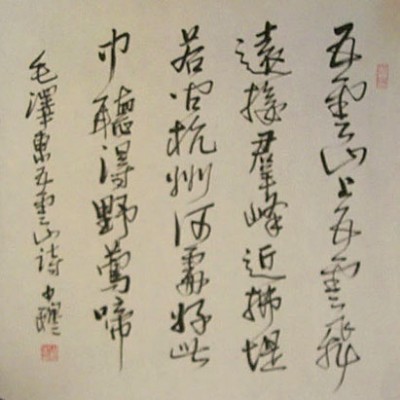 五雲山上五雲飛
遠接羣峰近拂堤
若問杭州何處好此
中聽得野鶯啼
毛澤東五雲山詩